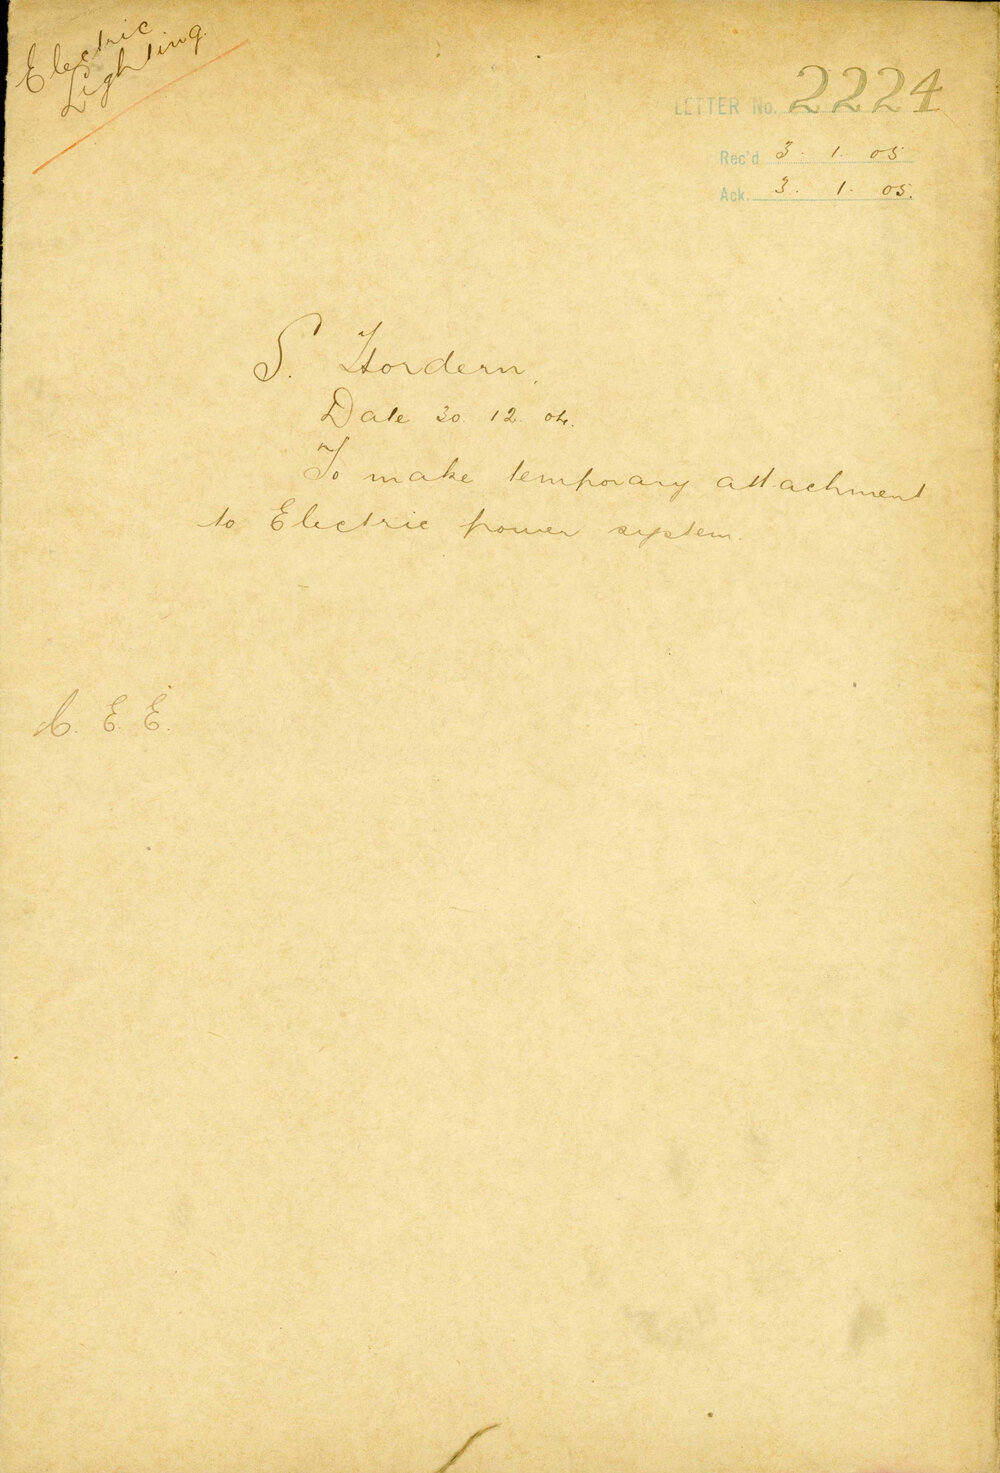 Electric
Lighting.
LETTER No. 2224
Rec'd 3. 1. 05
Ack. 3. 1. 05.
S. Hordern.
Date 30. 12. 04.
To make temporary attachment
to Electric power system.
C. E. E.